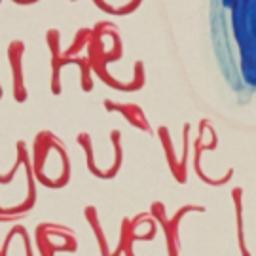 like
you've
never